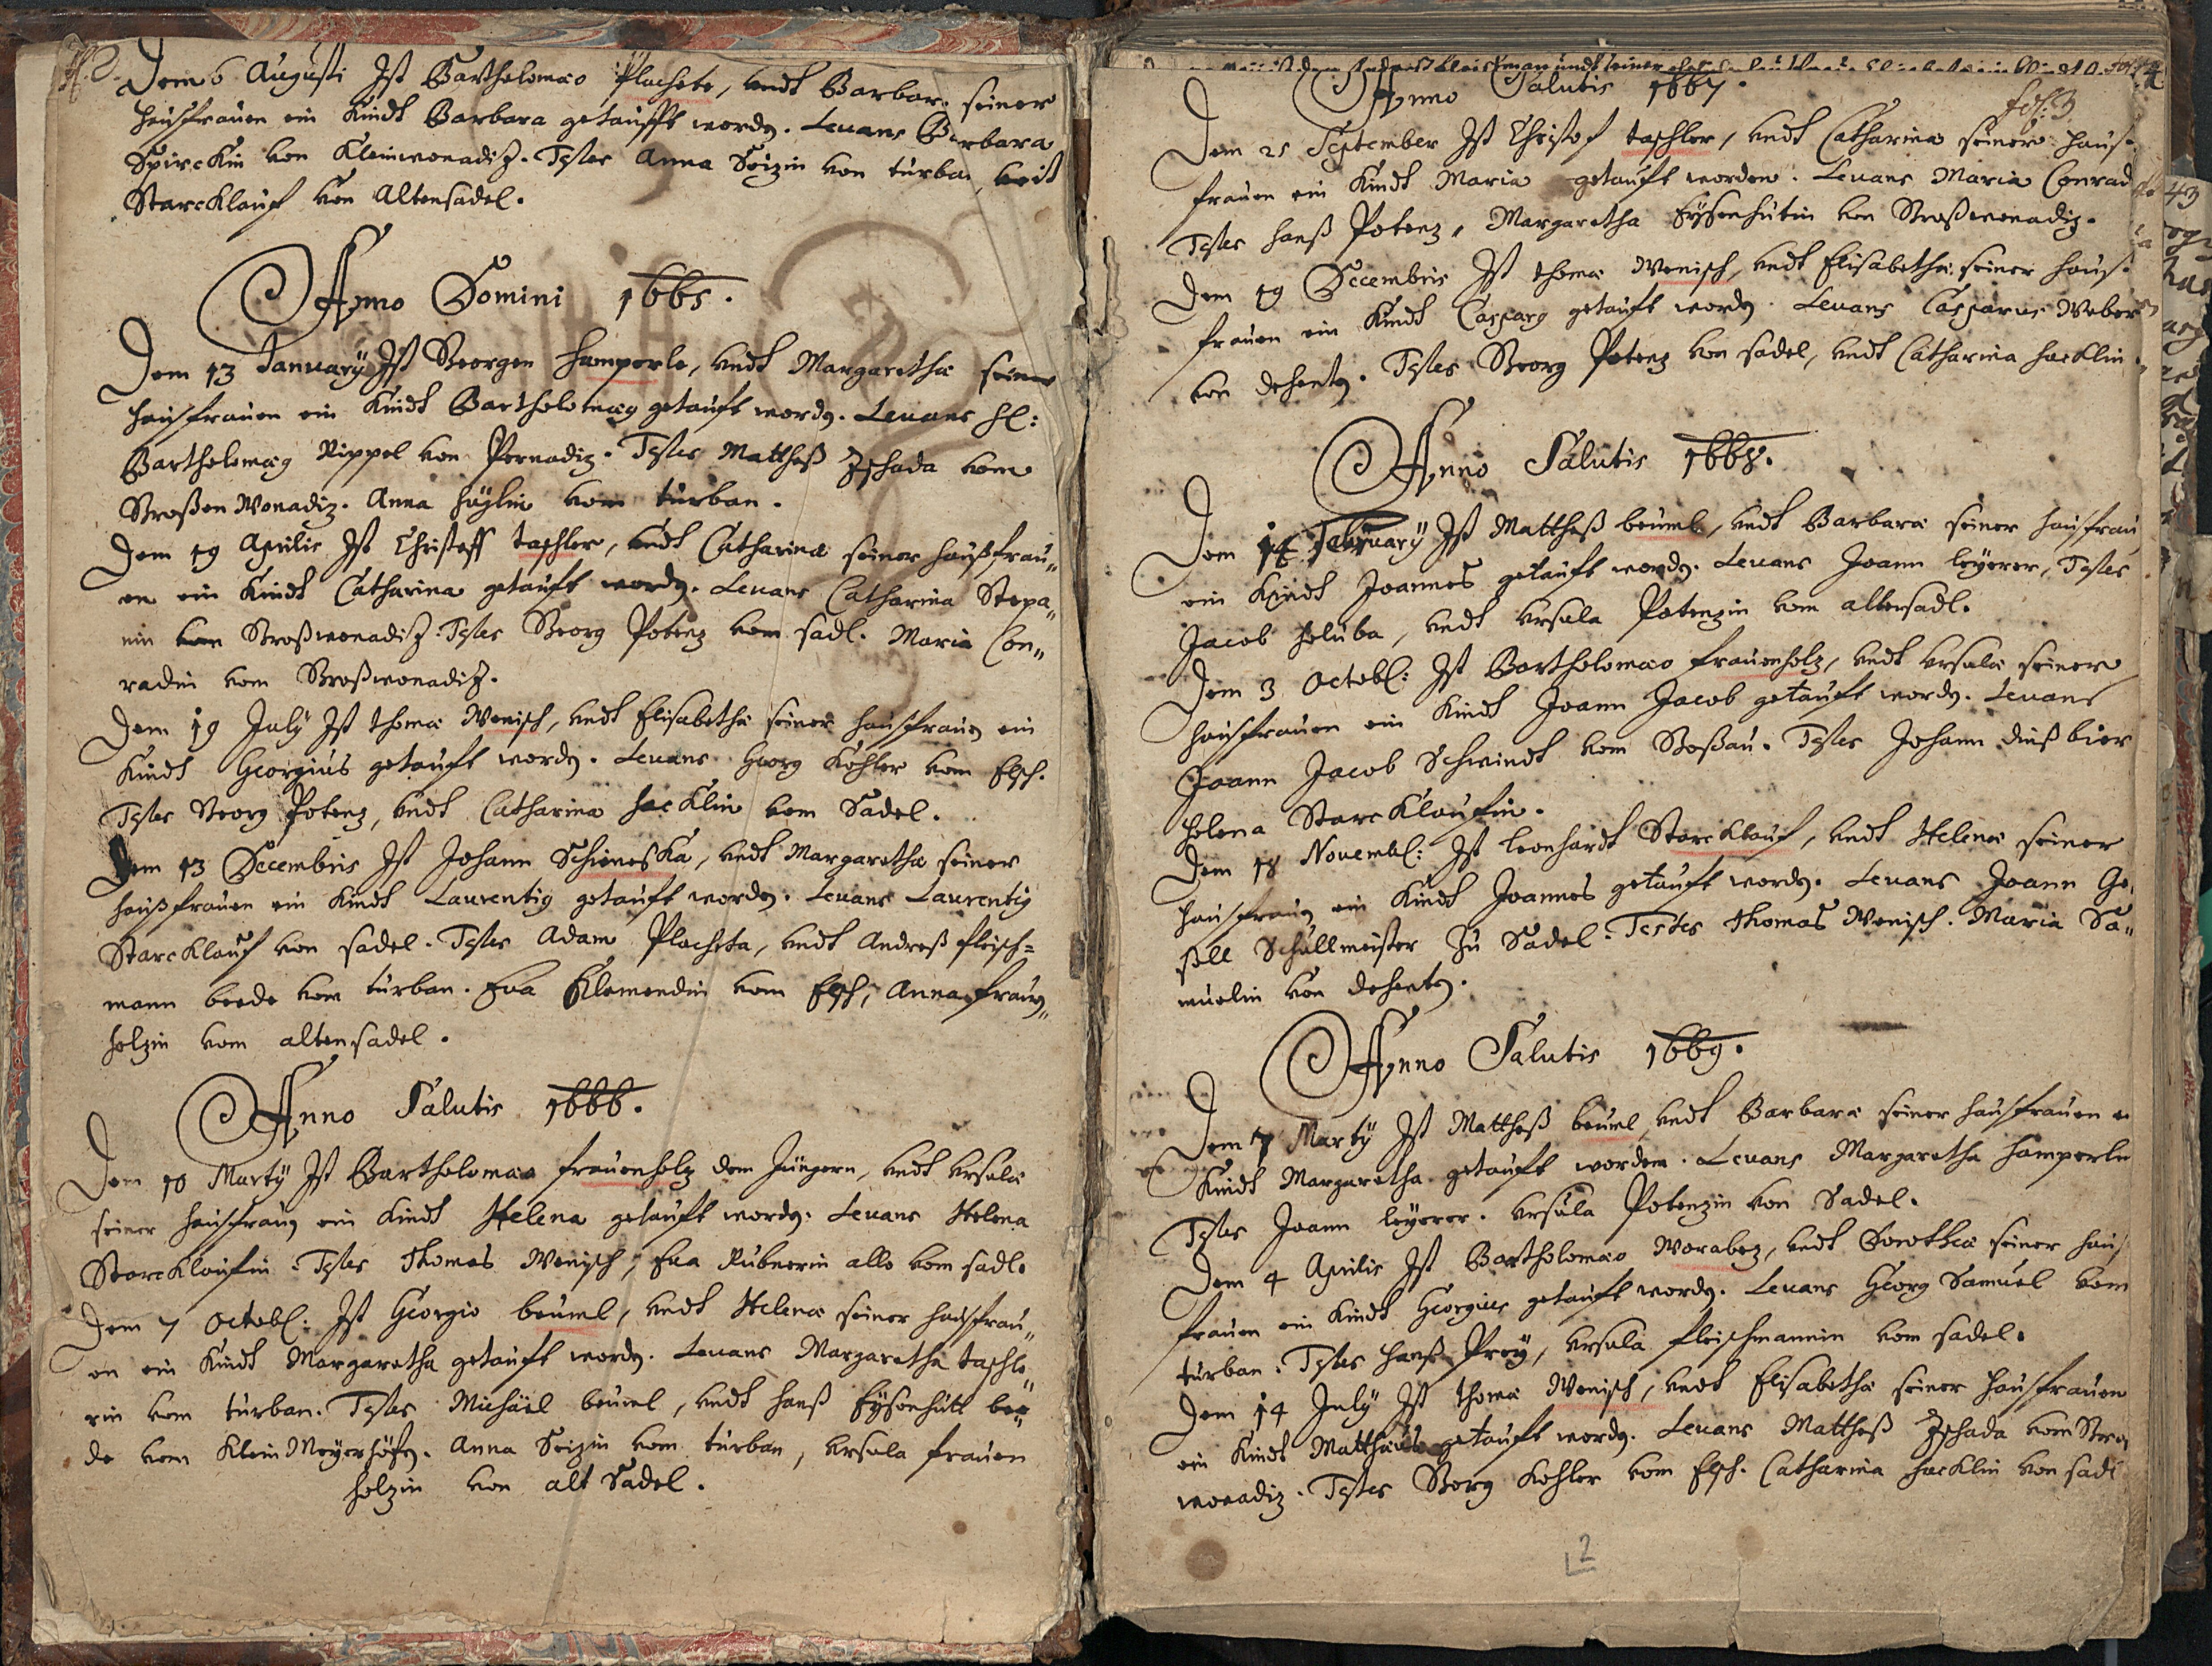 Dem 6 Augusti Ist Bartholomæo Plachete, vndt Barbaræ seiner
haußfrauen ein Kindt Barbara getaufft wordn. Levans Barbara
Spirckin von Kleinwonadiz. Testes Anna Seizin von turban, Veit
Starcklauf von Altensadel.
Anno Domini 1665.
Dem 13 January Ist Georgen Hamperle, vndt Margarethæ seiner
haußfrauen ein Kindt Bartholomæg getauft wordn. Levans H:
Bartholomæg Rippel von Pernadiz. Testes Mattheß Zschada vom
Großen Wonadiz. Anna Häglin vom turban.
Dem 19 Aprilis Ist Christoff taschler, vndt Catharinæ seiner haußfrau„
en ein Kindt Catharina getauft wordn. Levans Catharina Stepa„
nin von Großwonadiz. Testes Georg Potenz vom sadl. Maria Con„
radin vom Großwonadiz.
Dem 19 July Ist Thomæ Wenisch, vndt Elisabethæ seiner haußfraun ein
Kindt Georgius getauft wordn. Levans Georg Köhler vom Elsch.
Testes Georg Potenz, vndt Catharina Hacklin vom Sadel.
Dem 13 Decembris Ist Johann Schineska, vndt Margarethæ seiner
haußfrauen ein Kindt Laurentig getauft wordn. Levans Laurentig
Starcklauf von sadel. Testes Adam Placheta, vndt Andreß fleisch=
mann beede vom turban. Eva Klemendin vom Elsch, Anna frauen„
holzin vom altensadel.
Anno Salutis 1666.
Dem 10 Marty Ist Bartholomæo frauenholz dem Jüngern, vndt Ursulæ
seiner haußfraun ein Kindt Helena getauft wordn. Levans Helena
Starcklaufin. Testes Thomas Wenisch, Eva Rubnerin alle vom sadl.
Dem 7 Octobl: Ist Georgio beuml, vndt Helenæ seiner haußfrau„
en ein Kindt Margaretha getauft wordn. Levans Margaretha taschle„
rin vom turban. Testes Michäel beuml, vndt Hanß Eysenhütt bee„
de vom Klein Meyerhöfn. Anna Seizin vom turban, Ursula frauen
holzin von alt Sadel.
fol: 3
Anno Salutis 1667.
Dem 21 September Ist Christof taschler, vndt Catharinæ seiner hauß
frauen ein Kindt Maria getauft worden. Levans Maria Conrad
Testes Hanß Potenz, Margaretha Eysenhütin von Großwonadiz.
Dem 19 Decembris Ist Thomæ Wenisch, vndt Elisabethæ seiner hauß
frauen ein Kindt Casparg getauft wordn. Levans Casparus Weber
von dehentn. Testes Georg Potenz von sadel, vndt Catharina Hacklin.
Anno Salutis 1668.
Dem 14 February Ist Mattheß beuml, vndt Barbaræ seiner haußfrau
ein Kindt Joannes getauft wordn. Levans Joann leyerer, Testes
Jacob Holuba, vndt Ursula Potenzin vom altensadl.
Dem 3 Octobl: Ist Bartholomæo frauenholz, vndt Ursulæ seiner
haußfrauen ein Kindt Joann Jacob getauft wordn. Levans
Joann Jacob Schmindt vom Goßau. Testes Johann dinßbier
Helena Starcklaufin.
Dem 18 Novembl: Ist leonhardt Starcklauf, vndt Helenæ seiner
haußfraun ein Kindt Joannes getauft wordn. Levans Joann Ge„
sell Schullmeister Zu Sadel. Testes Thomas Wenisch. Maria Sa„
muelin von dehentn.
Anno Salutis 1669.
Dem 7 Marty Ist Mattheß beuml, vndt Barbaræ seiner haußfrauen e
Kindt Margaretha getauft worden. Levans Margaretha Hamperlin
Testes Joann leyerer. Ursula Potenzin von Sadel.
Dem 4 Aprilis Ist Bartholomæo Worabez, vndt Dorotheæ seiner hauß
frauen ein Kindt Georgius getauft wordn. Levans Georg Samuel vom
turban. Testes Hanß Prey, Ursula fleischmannin vom sadel.
Dem 14 July Ist Thomæ Wenisch, vndt Elisabethæ seiner haußfrauen
ein Kindt Matthäus getauft wordn. Levans Mattheß Zschada vom Groß
wonadiz. Testes Georg Kohler vom Elsch. Catharina Hacklin von sadl
2